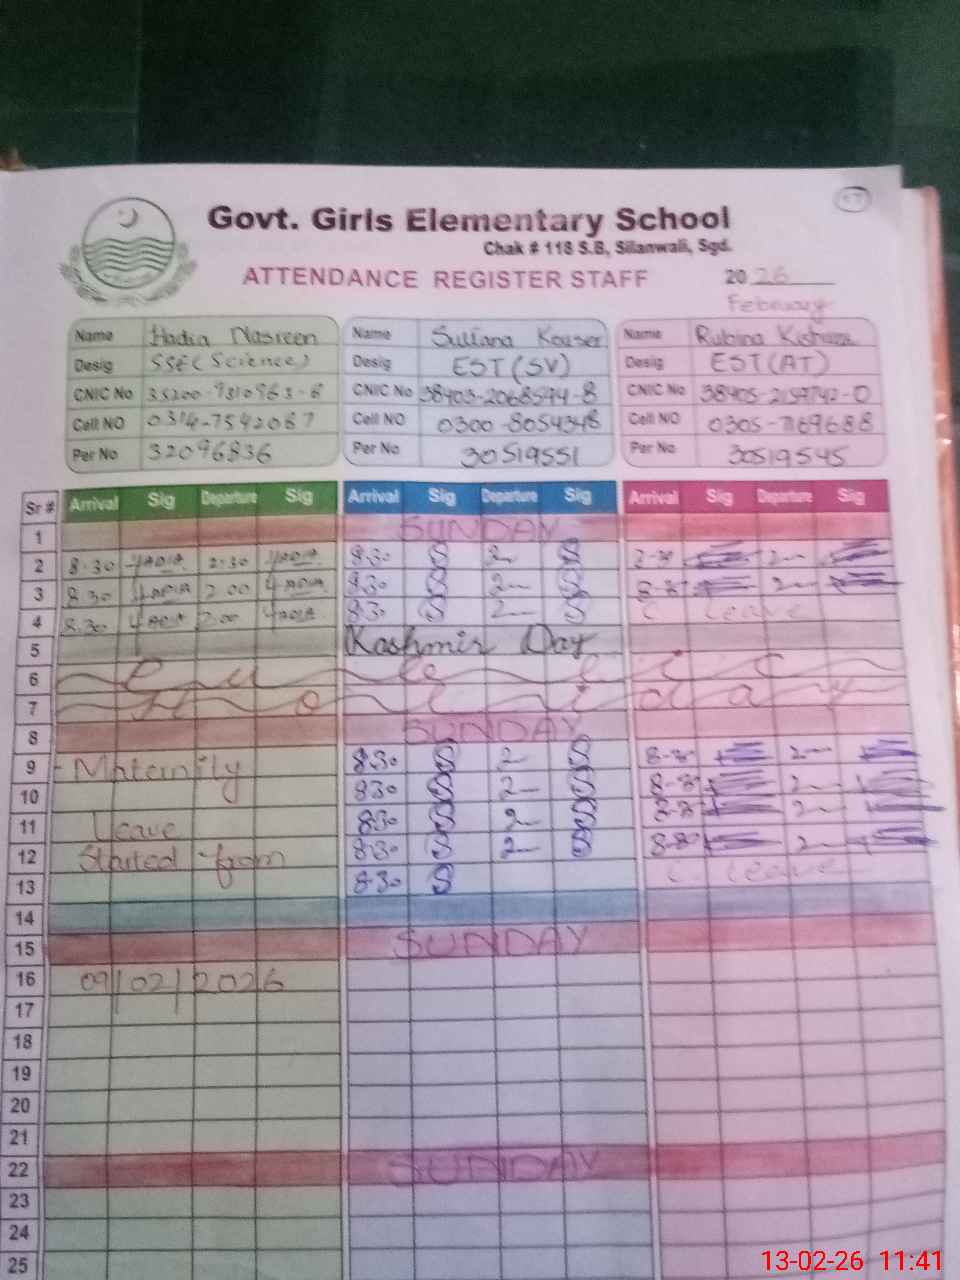 17
Govt. Girls Elementary School
Chak # 118 S.B, Silanwali, Sgd.
ATTENDANCE REGISTER STAFF 2026
February
Name Hadia Nasreen Name Sultana Kouser Name Rubina
Desig SSE(Science) Desig EST(SV) Desig EST(AT)
CNIC No CNIC No 38403-2068594-8 CNIC No
Cell NO 0314-7542067 Cell NO 0300-8054348 Cell NO 0305-7169688
Per No 32096836 Per No 30519551 Per No 30519545
Sr # Arrival Sig Departure Sig Arrival Sig Departure Sig Arrival Sig Departure Sig
1 SUNDAY
2 8.30 HADIA 2.30 HADIA 8.30 S 2 S 2
3 8.30 HADIA 2.00 HADIA 8.30 S 2 S 8-30 2
4 8.30 HADIA 2.00 HADIA 8.30 S 2 S C. Leave
5 Kashmir Day
6
7 Holiday
8 SUNDAY
9 Maternity 8.30 S 2 S 8-30 2
10 830 S 2 S 8-30 2
11 Leave 8.30 S 2 S 8-30 2
12 Started from 8.30 S 2 S 8-30 2
13 8.30 S C. Leave
14
15 SUNDAY
16 09/02/2026
17
18
19
20
21
22 SUNDAY
23
24
25
13-02-26 11:41